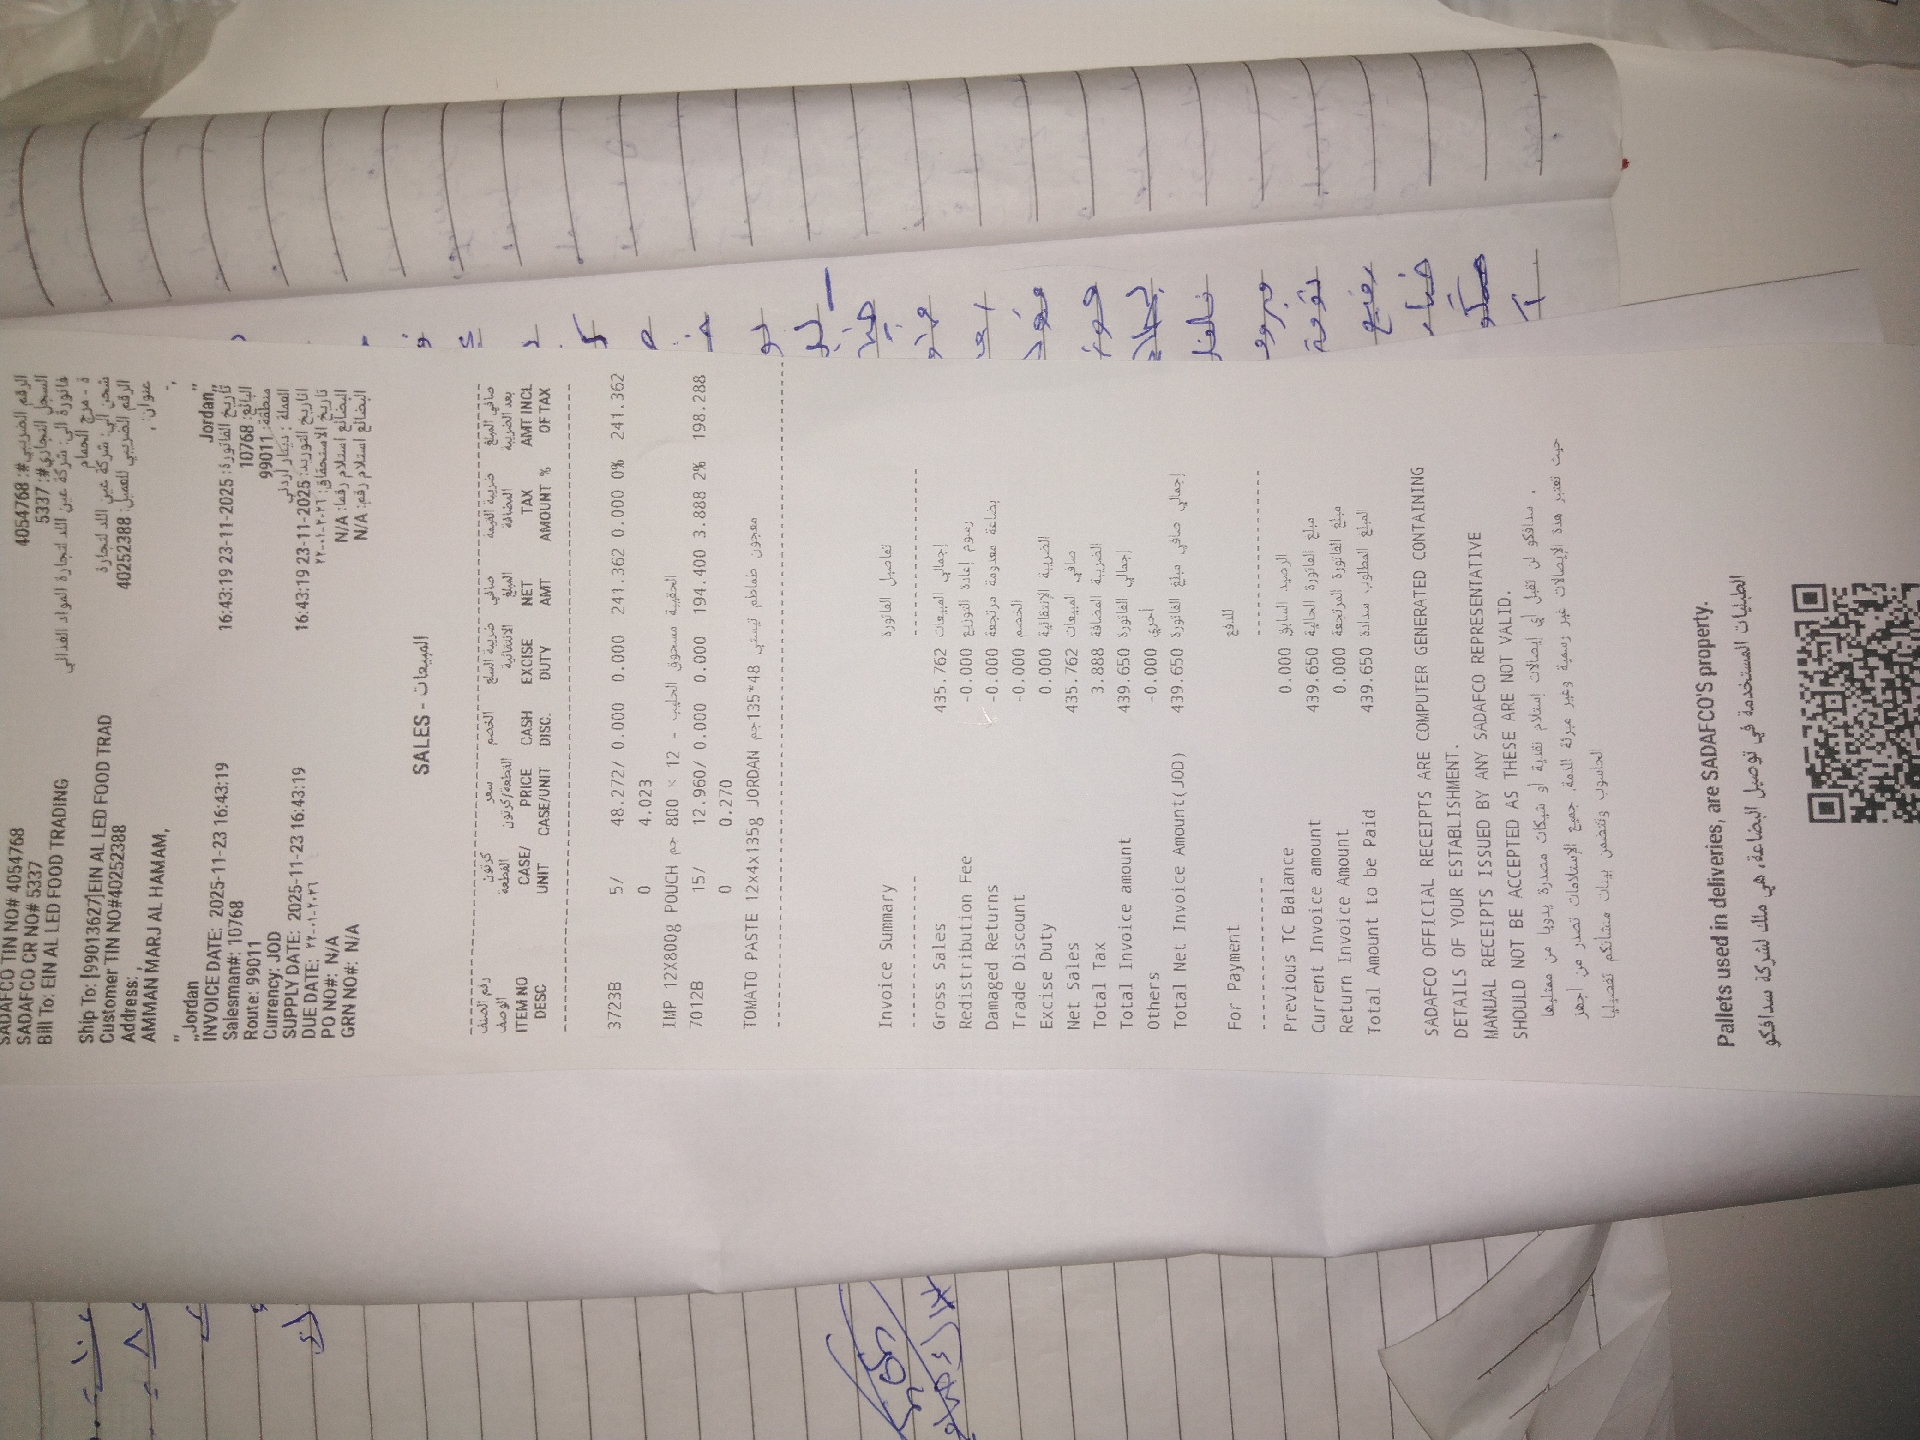 SADAFCO TIN NO# 4054768 الرقم الضريبي#: 4054768
SADAFCO CR NO# 5337 السجل التجاري#: 5337
Bill To: EIN AL LED FOOD TRADING فاتورة الى: شركة عين اللد لتجارة المواد الغذائي
Ship To: [99013627]EIN AL LED FOOD TRAD شحن الي: شركة عين اللد لتجارة
ة - مرج الحمام
Customer TIN NO#40252388 الرقم الضريبي للعميل: 40252388
Address: , عنوان: ,
AMMAN MARJ AL HAMAM,
"
,,Jordan Jordan,,
INVOICE DATE: 2025-11-23 16:43:19 تاريخ الفاتورة: 2025-11-23 16:43:19
Salesman#: 10768 البائع: 10768
Route: 99011 منطقة: 99011
Currency: JOD العملة : دينار أردني
SUPPLY DATE: 2025-11-23 16:43:19 التاريخ التوريد: 2025-11-23 16:43:19
DUE DATE: ٢٢-٠١-٢٠٢٦ تاريخ الاستحقاق: ٢٢-٠١-٢٠٢٦
PO NO#: N/A البضائع استلام رقما: N/A
GRN NO#: N/A البضائع استلام رقم: N/A
SALES - المبيعات
رقم الصنف كرتون سعر الخصم ضريبة السلع صافي ضريبة القيمة صافي المبلغ
الوصف القطعة القطعة/كرتون الانتقائية المبلغ المضافة بعد الضريبة
ITEM NO CASE/ PRICE CASH EXCISE NET TAX AMT INCL
DESC UNIT CASE/UNIT DISC. DUTY AMT AMOUNT % OF TAX
3723B 5/ 48.272/ 0.000 0.000 241.362 0.000 0% 241.362
0 4.023
IMP 12X800g POUCH الحقيبة مسحوق الحليب - 12 × 800 جم
7012B 15/ 12.960/ 0.000 0.000 194.400 3.888 2% 198.288
0 0.270
TOMATO PASTE 12x4x135g JORDAN معجون طماطم تيستي 48*135جم
Invoice Summary تفاصيل الفاتورة
Gross Sales 435.762 إجمالي المبيعات
Redistribution Fee -0.000 رسوم إعادة التوزيع
Damaged Returns -0.000 بضاعة معدومة مرتجعة
Trade Discount -0.000 الخصم
Excise Duty 0.000 الضريبة الإنتقالية
Net Sales 435.762 صافي المبيعات
Total Tax 3.888 الضريبة المضافة
Total Invoice amount 439.650 إجمالي الفاتورة
Others -0.000 أخري
Total Net Invoice Amount(JOD) 439.650 إجمالي صافي مبلغ الفاتورة
For Payment للدفع
Previous TC Balance 0.000 الرصيد السابق
Current Invoice amount 439.650 مبلغ الفاتورة الحالية
Return Invoice Amount 0.000 مبلغ الفاتورة المرتجعة
Total Amount to be Paid 439.650 المبلغ المطلوب سدادة
SADAFCO OFFICIAL RECEIPTS ARE COMPUTER GENERATED CONTAINING
DETAILS OF YOUR ESTABLISHMENT.
MANUAL RECEIPTS ISSUED BY ANY SADAFCO REPRESENTATIVE
SHOULD NOT BE ACCEPTED AS THESE ARE NOT VALID.
سدافكو لن تقبل أي إيصالات إستلام نقدية أو شيكات مصدرة يدويا من ممثليها .
حيث تعتبر هذة الإيصالات غير رسمية وغير مبرئة الذمة. جميع الإستلامات تصدر من اجهز
الحاسوب وتتضمن بينات منشأتكم تفصيليا
Pallets used in deliveries, are SADAFCO'S property.
الطبليات المستخدمة في توصيل البضاعة، هي ملك لشركة سدافكو